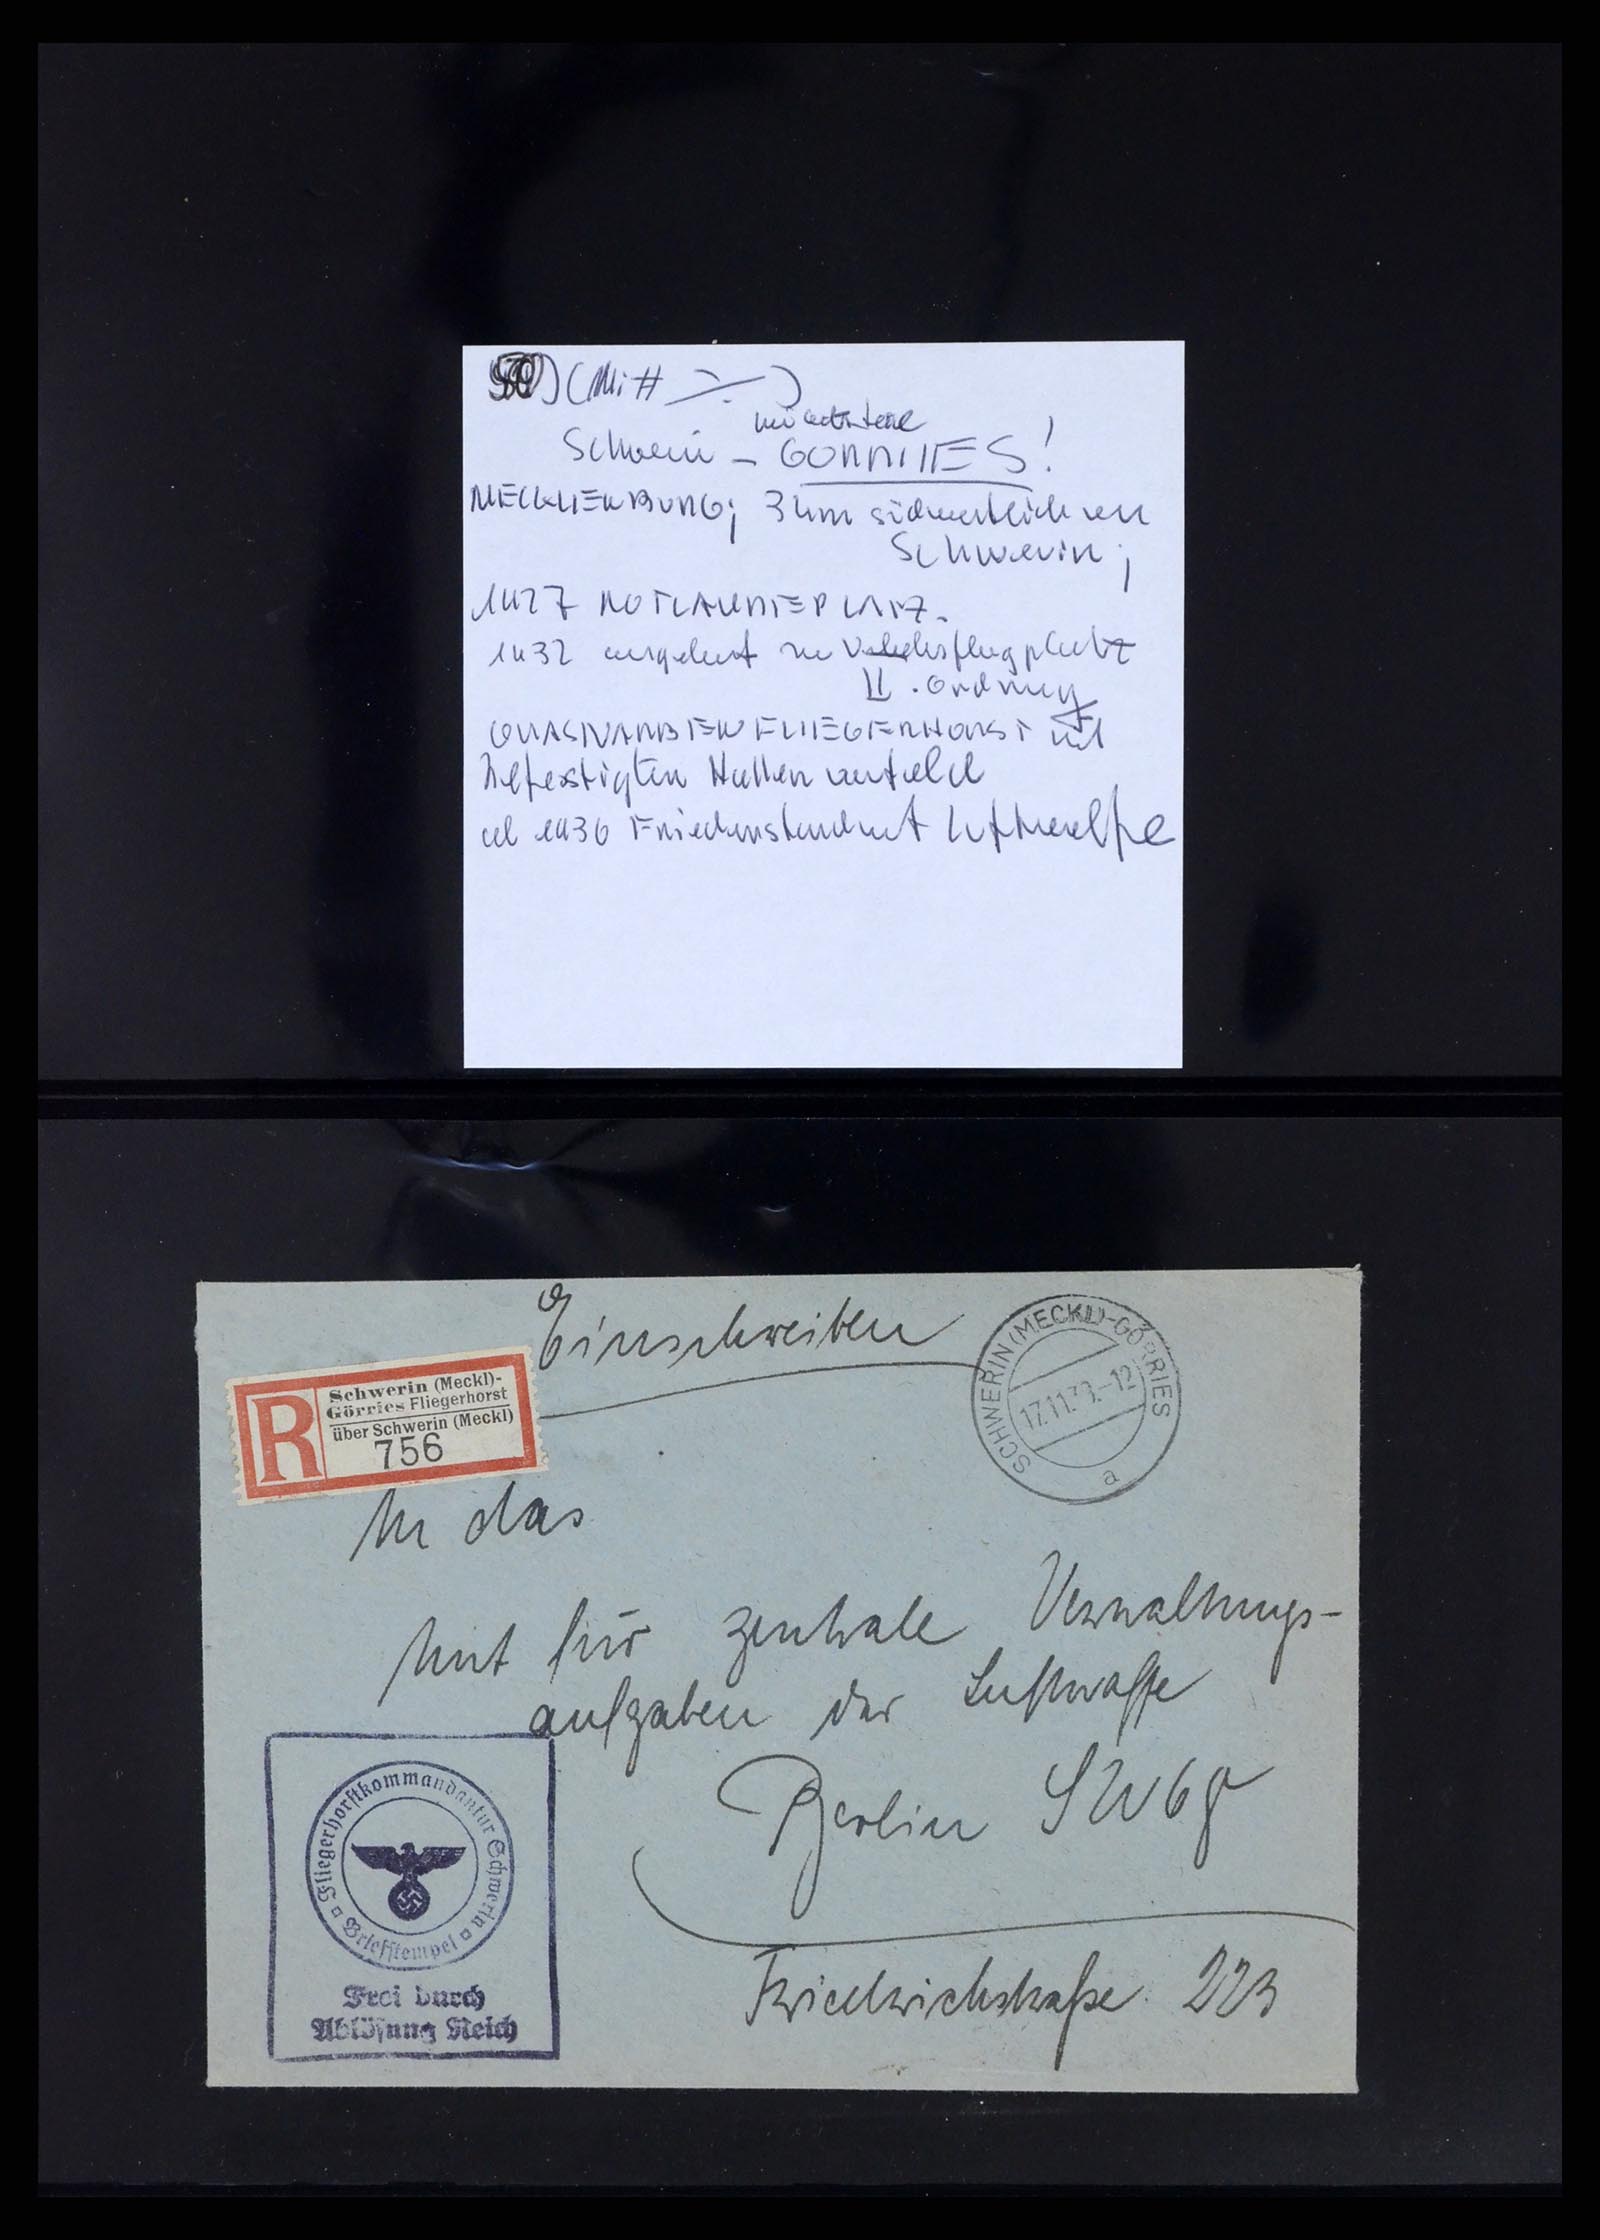 (Mitt
Schwerin - GÖRRIES!
MECKLENBURG; 3 km südwestlich von
Schwerin;
1927 NOTLANDEPLATZ.
1932 ausgebaut zu Verkehrsflugplatz
II. Ordnung
FLIEGERHORST mit
befestigten Hallen
ab 1936 Friedensstandort Luftwaffe
Einschreiben
SCHWERIN (MECKL)-GÖRRIES
17.11.39.-12
a
R
Schwerin (Meckl)-
Görries Fliegerhorst
über Schwerin (Meckl)
756
An das
Amt für zentrale Verwaltungs-
aufgaben der Luftwaffe
Berlin SW 68
Friedrichstraße 223
Fliegerhorstkommandantur Schwerin
Briefstempel
Frei durch
Ablösung Reich